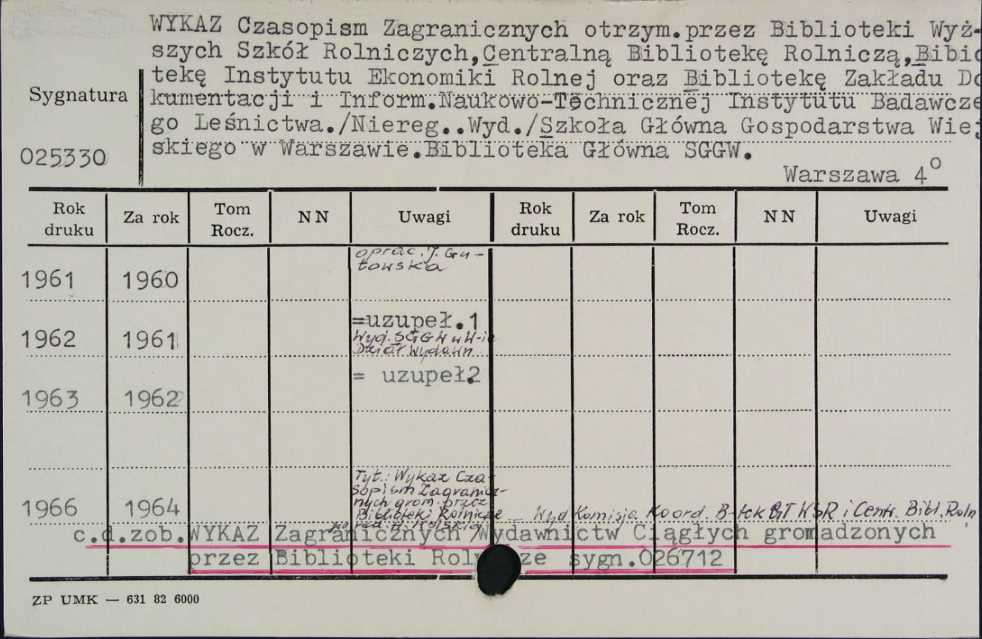 WYKAZ Czasopism Zagranicznych otrzym.przez Biblioteki Wyż-
szych Szkół Rolniczych,Centralną Bibliotekę Rolniczą,Bibio
tekę Instytutu Ekonomiki Rolnej oraz Bibliotekę Zakładu Do
Sygnatura
kumentacji i Inform.Naukowo-Technicznej Instytutu Badawcze
go Leśnictwa./Niereg..Wyd./Szkoła Główna Gospodarstwa Wiej
025330
skiego w Warszawie.Biblioteka Główna SGGW.
Warszawa 4°
Rok druku Za rok Tom Rocz. NN Uwagi Rok druku Za rok Tom Rocz. NN Uwagi
oprac. J. Gu-
towska
1961 1960
=uzupeł.1
1962 1961
Wyd. SGGW w W-ie
Dział Wydawn.
= uzupeł.2
1963 1962
Tyt.: Wykaz Cza-
sopism Zagranicz-
nych grom. przez
Biblioteki Rolnicze
1966 1964
Wyd Komisja Koord. B-tek PiT WSR i Centr. Bibl. Roln
c.d.zob.WYKAZ Zagranicznych Wydawnictw Ciągłych gromadzonych
przez Biblioteki Rolnicze sygn.026712
ZP UMK — 631 82 6000